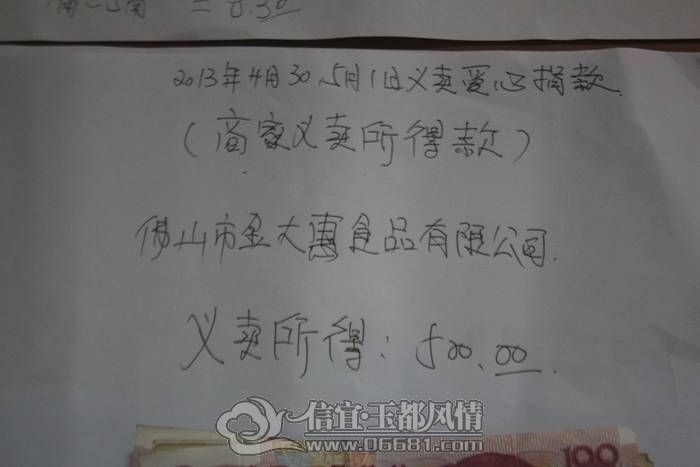 = 8.30
2013年4月30、5月1日义卖爱心捐款
(商家义卖所得款)
佛山市金大惠食品有限公司.
义卖所得: 500.00
信宜·玉都风情
www.06681.com
100